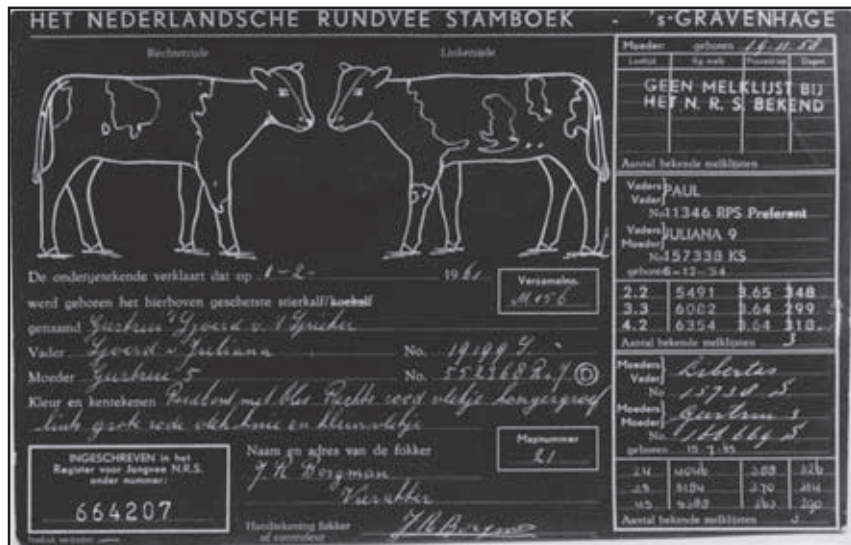 HET NEDERLANDSCHE RUNDVEE STAMBOEK - 's-GRAVENHAGE
Rechterzijde Linkerzijde
De ondergetekende verklaart dat op 1-2- 1961
Verzamelno.
M 156
werd geboren het hierboven geschetste stierkalf/koekalf
genaamd Sjoerd v.
Vader Sjoerd v Juliana No. 19199 S
Moeder 5 No. 552368 R.
Kleur en kenteken Roodbont met bles Rechts rood vlekje hongergroef
links grote rode vlek knie en klein vlekje
INGESCHREVEN in het
Register voor Jongvee N.R.S.
onder nummer:
664207
Naam en adres van de fokker
J.H. Borgman
Vierakker
Mapnummer
21
Handtekening fokker
of controleur
Moeder: geboren 19-11-58
Leeftijd Kg melk Procent vet Dagen
GEEN MELKLIJST BIJ
HET N. R. S. BEKEND
Aantal bekende melklijsten
Vaders Vader PAUL
No 11346 RPS Preferent
Vaders Moeder JULIANA 9
No 157338 KS
geboren 6-12-54
2.2 5491 3.65 348
3.3 6002 3.64 299
4.2 6354 3.64 318
Aantal bekende melklijsten 3
Moeders Vader Libertas
No 15738 S
Moeders Moeder 3
No.
geboren
Aantal bekende melklijsten 3